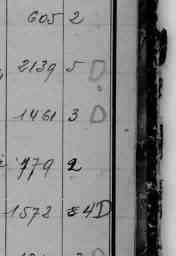 605 2
2139 5 D
1461 3 D
779 2
1572 4 D